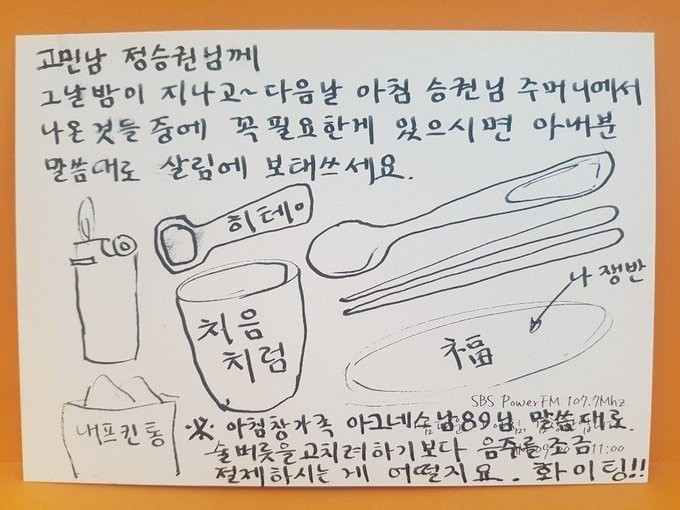 고민남 정승권님께
그날밤이 지나고~ 다음날 아침 승권님 주머니에서
나온것들중에 꼭필요한게 있으시면 아내분
말씀대로 살림에 보태쓰세요.
히테이
나 쟁반
처음
처럼
福
SBS PowerFM 107.7Mhz
내프킨통
※ 아침창가족 아그네스님, 남89님 말씀대로.
술버릇을고치려하기보다 음주를 조금
11:00
절제하시는 게 어떨지요. 화이팅!!